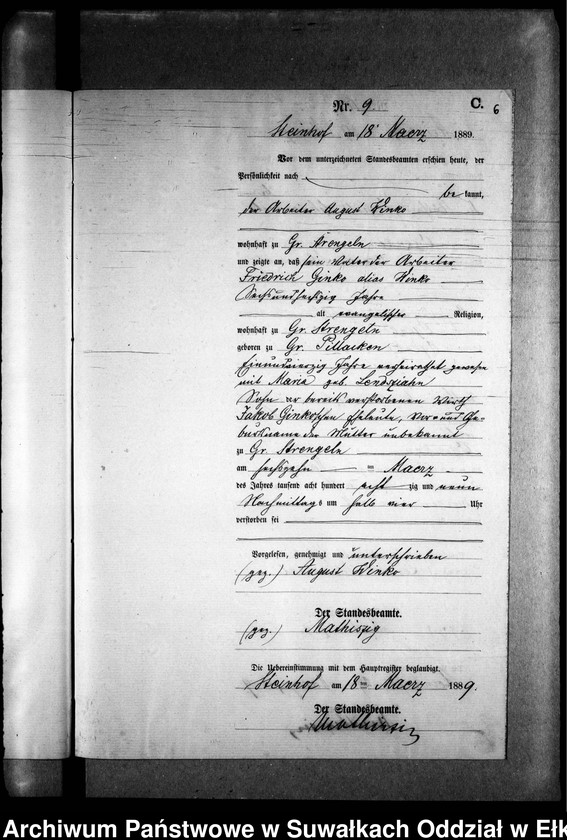 C.
6
Nr. 9
Steinhof am 18 Maerz 1889.
Vor dem unterzeichneten Standesbeamten erschien heute, der
Persönlichkeit nach
be kannt,
der Arbeiter August Winko
wohnhaft zu Gr. Strengeln
und zeigte an, daß sein Vater der Arbeiter
Friedrich Ginko alias Winko
Sechsundsechszig Jahre
alt evangelischer Religion,
wohnhaft zu Gr. Strengeln
geboren zu Gr. Pillacken
Einundvierzig Jahre verheirathet gewesen
mit Maria geb. Lendzian
Sohn der bereits verstorbenen Wirth
Jakob Ginkoschen Eheleute, Vor- und Ge-
burtsname der Mutter unbekannt
zu Gr. Strengeln
am sechszehn ten Maerz
des Jahres tausend acht hundert acht zig und neun
Nachmittags um halb vier Uhr
verstorben sei
Vorgelesen, genehmigt und unterschrieben
(gez.) August Winko
Der Standesbeamte.
(gez.) Mathiszig
Die Uebereinstimmung mit dem Hauptregister beglaubigt.
Steinhof am 18 Maerz 1889.
Der Standesbeamte.
Mathiszig
Archiwum Państwowe w Suwałkach Oddział w Ełk